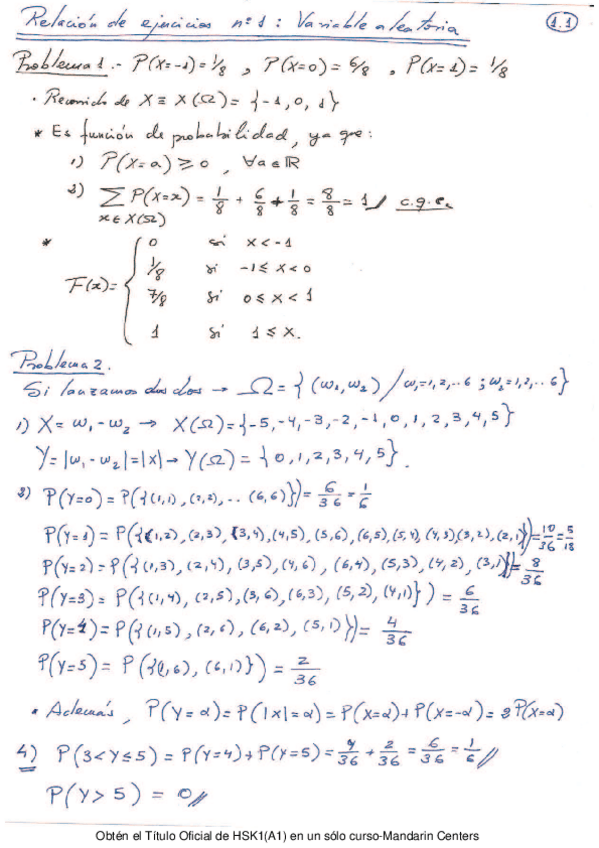 Relación de ejercicios nº1: Variable aleatoria
1.1
Problema 1.- P(X=-1)=1/8 , P(X=0)=6/8 , P(X=1)=1/8
· Recorrido de X ≡ X(Ω) = {-1, 0, 1}
* Es función de probabilidad, ya que:
1) P(X=a) ≥ 0 , ∀a∈ℝ
2) ∑ P(X=x) = 1/8 + 6/8 + 1/8 = 8/8 = 1 // c.q.c.
x∈X(Ω)
* F(x) = {
0 si x<-1
1/8 si -1≤x<0
7/8 si 0≤x<1
1 si 1≤x.
Problema 2.
Si lanzamos dos dados → Ω = {(ω₁,ω₂) / ω₁=1,2,..6 ; ω₂=1,2,..6}
1) X = ω₁-ω₂ → X(Ω) = {-5,-4,-3,-2,-1,0,1,2,3,4,5}
Y=|ω₁-ω₂|=|X| → Y(Ω) = {0,1,2,3,4,5}.
3) P(Y=0) = P({(1,1), (2,2), .. (6,6)}) = 6/36 = 1/6
P(Y=1) = P({(1,2), (2,3), (3,4), (4,5), (5,6), (6,5), (5,4), (4,3), (3,2), (2,1)}) = 10/36 = 5/18
P(Y=2) = P({(1,3), (2,4), (3,5), (4,6), (6,4), (5,3), (4,2), (3,1)}) = 8/36
P(Y=3) = P({(1,4), (2,5), (3,6), (6,3), (5,2), (4,1)}) = 6/36
P(Y=4) = P({(1,5), (2,6), (6,2), (5,1)}) = 4/36
P(Y=5) = P({(1,6), (6,1)}) = 2/36
· Además, P(Y=α) = P(|X|=α) = P(X=α)+P(X=-α) = 2P(X=α)
4) P(3<Y≤5) = P(Y=4)+P(Y=5) = 4/36 + 2/36 = 6/36 = 1/6 //
P(Y>5) = 0 //
Obtén el Título Oficial de HSK1(A1) en un sólo curso-Mandarin Centers